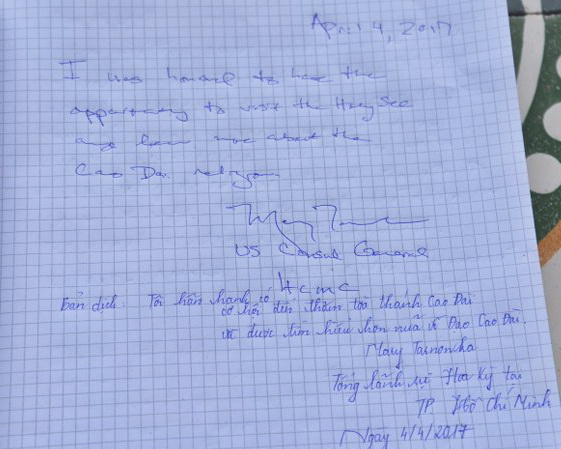 April 4, 2017
I was honored to have the
opportunity to visit the Holy See
and learn more about the
Cao Dai religion
US Consul General
HCMC
Bản dịch: Tôi hân hạnh có
cơ hội đến thăm tòa thánh Cao Đài
và được tìm hiểu hơn nữa về Đạo Cao Đài.
Mary Tarnonka
Tổng lãnh sự Hoa Kỳ tại
TP Hồ Chí Minh
Ngày 4/4/2017